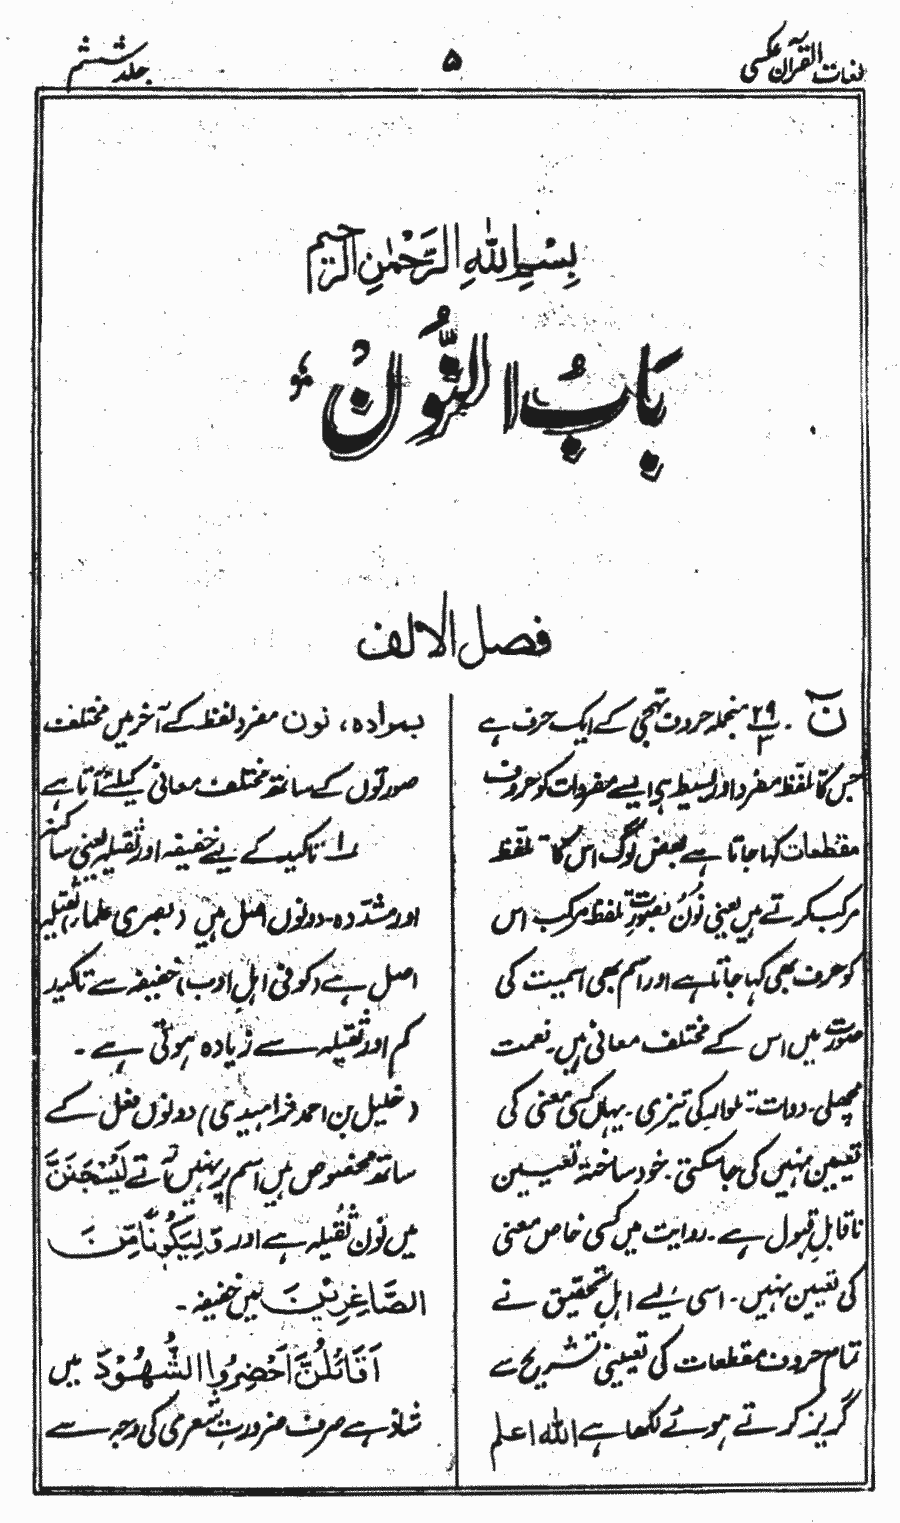 لغات القرآن عکسی
۵
جلد ششم
بِسْمِ اللّٰهِ الرَّحْمٰنِ الرَّحِیْمِ
بَابُ النُّوْنُ
فصل الالف
نٓ . ۲۹/۳ منجملہ حروف تہجی کے ایک حرف ہے
جس کا تلفظ مفرد اور بسیط ہی ایسے مفردات کو حروف
مقطعات کہا جاتا ہے بعض لوگ اس کا تلفظ
مرکب کرتے ہیں یعنی نُوْنُ بصورتِ لفظ مرکب اس
کو حرف بھی کہا جاتا ہے اور اسم بھی اسمیت کی
صورت میں اس کے مختلف معانی ہیں۔ نعمت
مچھلی۔ دوات۔ تلوار کی تیزی۔ یہاں کسی معنی کی
تعیین نہیں کی جا سکتی۔ خود ساختہ تعیین
ناقابلِ قبول ہے۔ روایت میں کسی خاص معنی
کی تعیین نہیں۔ اسی لیے اہلِ تحقیق نے
تمام حروف مقطعات کی تعیینی تشریح سے
گریز کرتے ہوئے لکھا ہے اللہ اعلم
بمرادہ، نون مفرد لفظ کے آخر میں مختلف
صورتوں کے ساتھ مختلف معانی کیلئے آتا ہے
۱۔ تاکید کے لیے خفیفہ اور ثقیلہ یعنی ساکنہ
اور مشدّدہ۔ دونوں اصل ہیں (بصری علماء) ثقیلہ
اصل ہے (کوفی اہلِ ادب) خفیفہ سے تاکید
کم اور ثقیلہ سے زیادہ ہوتی ہے۔
(خلیل بن احمد فراہیدی) دونوں فعل کے
ساتھ مخصوص ہیں اسم پر نہیں آتے لَیُسْجَنَنَّ
میں نون ثقیلہ ہے اور وَلَیَكُوْنًا مِّنَ
الصَّاغِرِیْنَ میں خفیفہ۔
اَقَائِلُنَّ اَحْضِرُوا الشُّهُوْدَ میں
شاذ ہے صرف ضرورت شعری کی وجہ سے